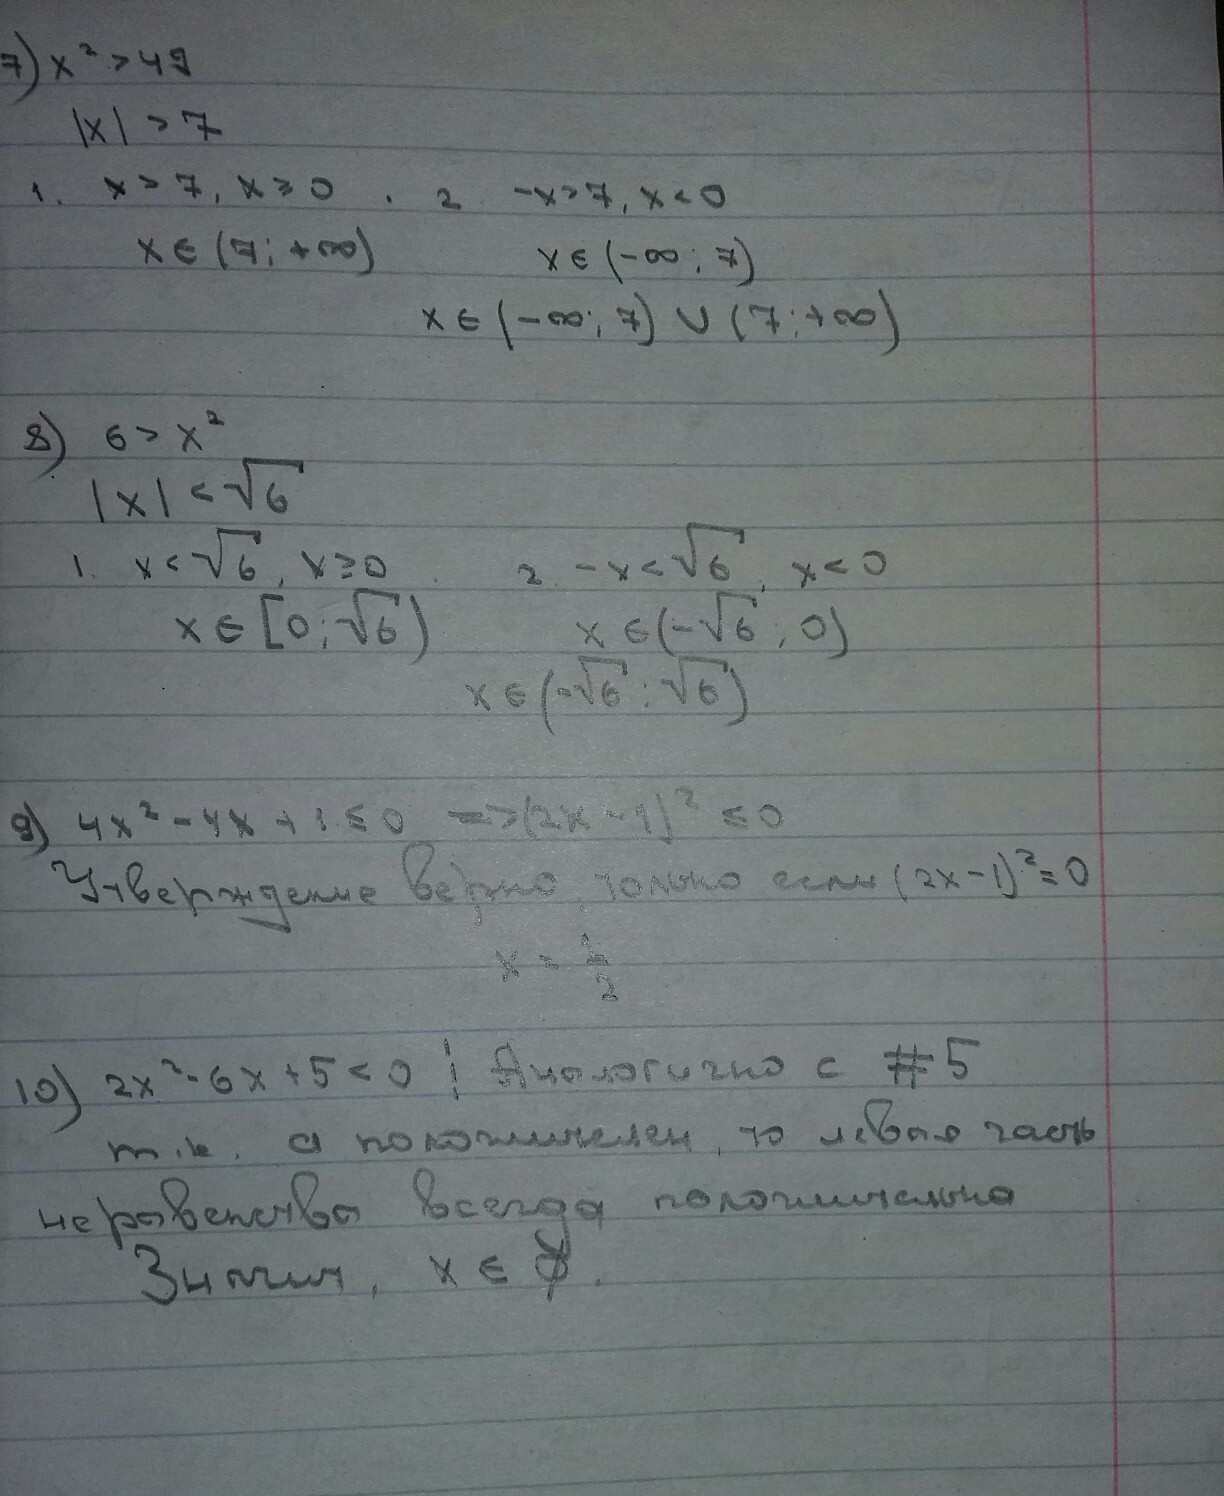 7) x² > 49
|x| > 7
1. x > 7, x ≥ 0. 2. -x > 7, x < 0
x ∈ (7; +∞) x ∈ (-∞; 7)
x ∈ (-∞; 7) ∪ (7; +∞)
8) 6 > x²
|x| < √6
1. x < √6, x ≥ 0. 2. -x < √6, x < 0
x ∈ [0; √6) x ∈ (-√6; 0)
x ∈ (-√6; √6)
9) 4x² - 4x + 1 ≤ 0 => (2x - 1)² ≤ 0
Утверждение верно, только если (2x - 1)² = 0
x = 1/2
10) 2x² - 6x + 5 < 0 | Аналогично с #5
т.к. a положителен, то левая часть
неравенства всегда положительна
Значит, x ∈ ∅.